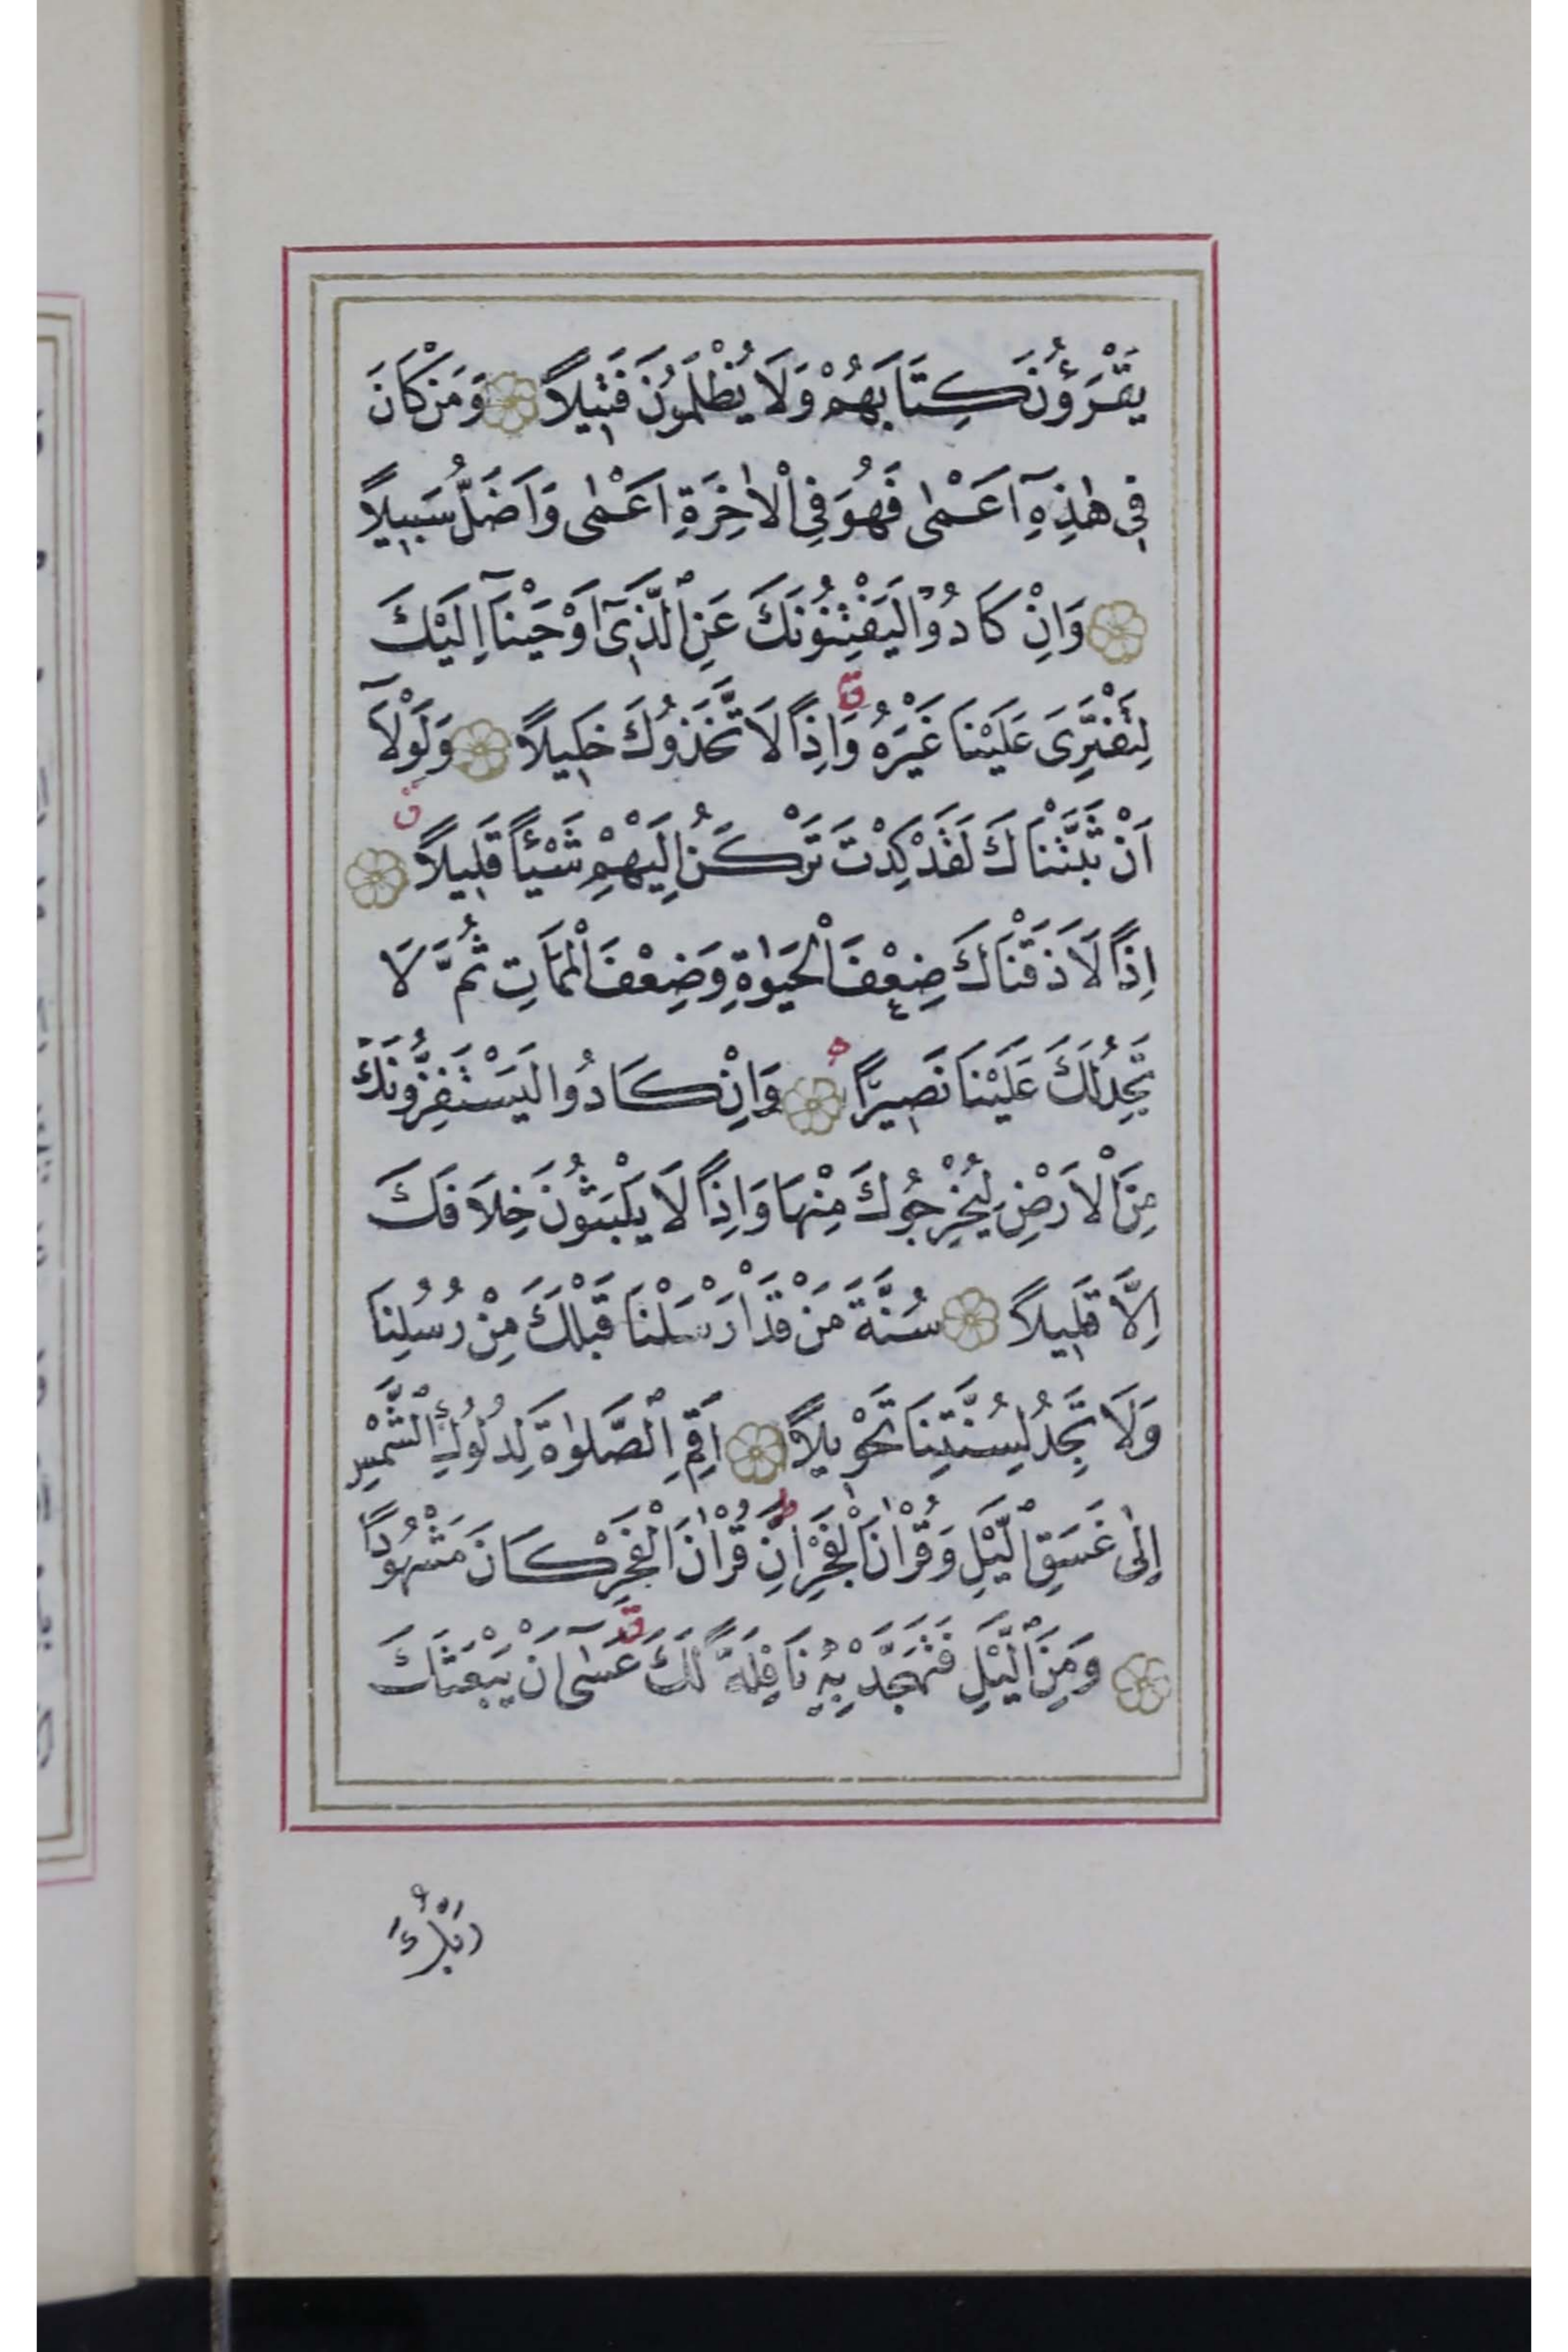 يَقْرَؤُنَ كِتَابَهُمْ وَلَا يُظْلَمُونَ فَتِيلًا ۝ وَمَنْ كَانَ
فِي هٰذِهِٓ اَعْمٰى فَهُوَ فِي الْاٰخِرَةِ اَعْمٰى وَاَضَلُّ سَبِيلًا
۝ وَاِنْ كَادُوا لَيَفْتِنُونَكَ عَنِ الَّذِٓي اَوْحَيْنَٓا اِلَيْكَ
لِتَفْتَرِيَ عَلَيْنَا غَيْرَهُ ق وَاِذًا لَاتَّخَذُوكَ خَلِيلًا ۝ وَلَوْلَٓا
اَنْ ثَبَّتْنَاكَ لَقَدْ كِدْتَ تَرْكَنُ اِلَيْهِمْ شَيْـًٔا قَلِيلًا ق ۝
اِذًا لَاَذَقْنَاكَ ضِعْفَ الْحَيٰوةِ وَضِعْفَ الْمَمَاتِ ثُمَّ لَا
تَجِدُ لَكَ عَلَيْنَا نَصِيرًا ه ۝ وَاِنْ كَادُوا لَيَسْتَفِزُّونَكَ
مِنَ الْاَرْضِ لِيُخْرِجُوكَ مِنْهَا وَاِذًا لَا يَلْبَثُونَ خِلَافَكَ
اِلَّا قَلِيلًا ۝ سُنَّةَ مَنْ قَدْ اَرْسَلْنَا قَبْلَكَ مِنْ رُسُلِنَا
وَلَا تَجِدُ لِسُنَّتِنَا تَحْوِيلًا ۝ اَقِمِ الصَّلٰوةَ لِدُلُوكِ الشَّمْسِ
اِلٰى غَسَقِ الَّيْلِ وَقُرْاٰنَ الْفَجْرِ ط اِنَّ قُرْاٰنَ الْفَجْرِ كَانَ مَشْهُودًا
۝ وَمِنَ الَّيْلِ فَتَهَجَّدْ بِهِ نَافِلَةً لَكَ ق عَسٰٓى اَنْ يَبْعَثَكَ
رَبُّكَ